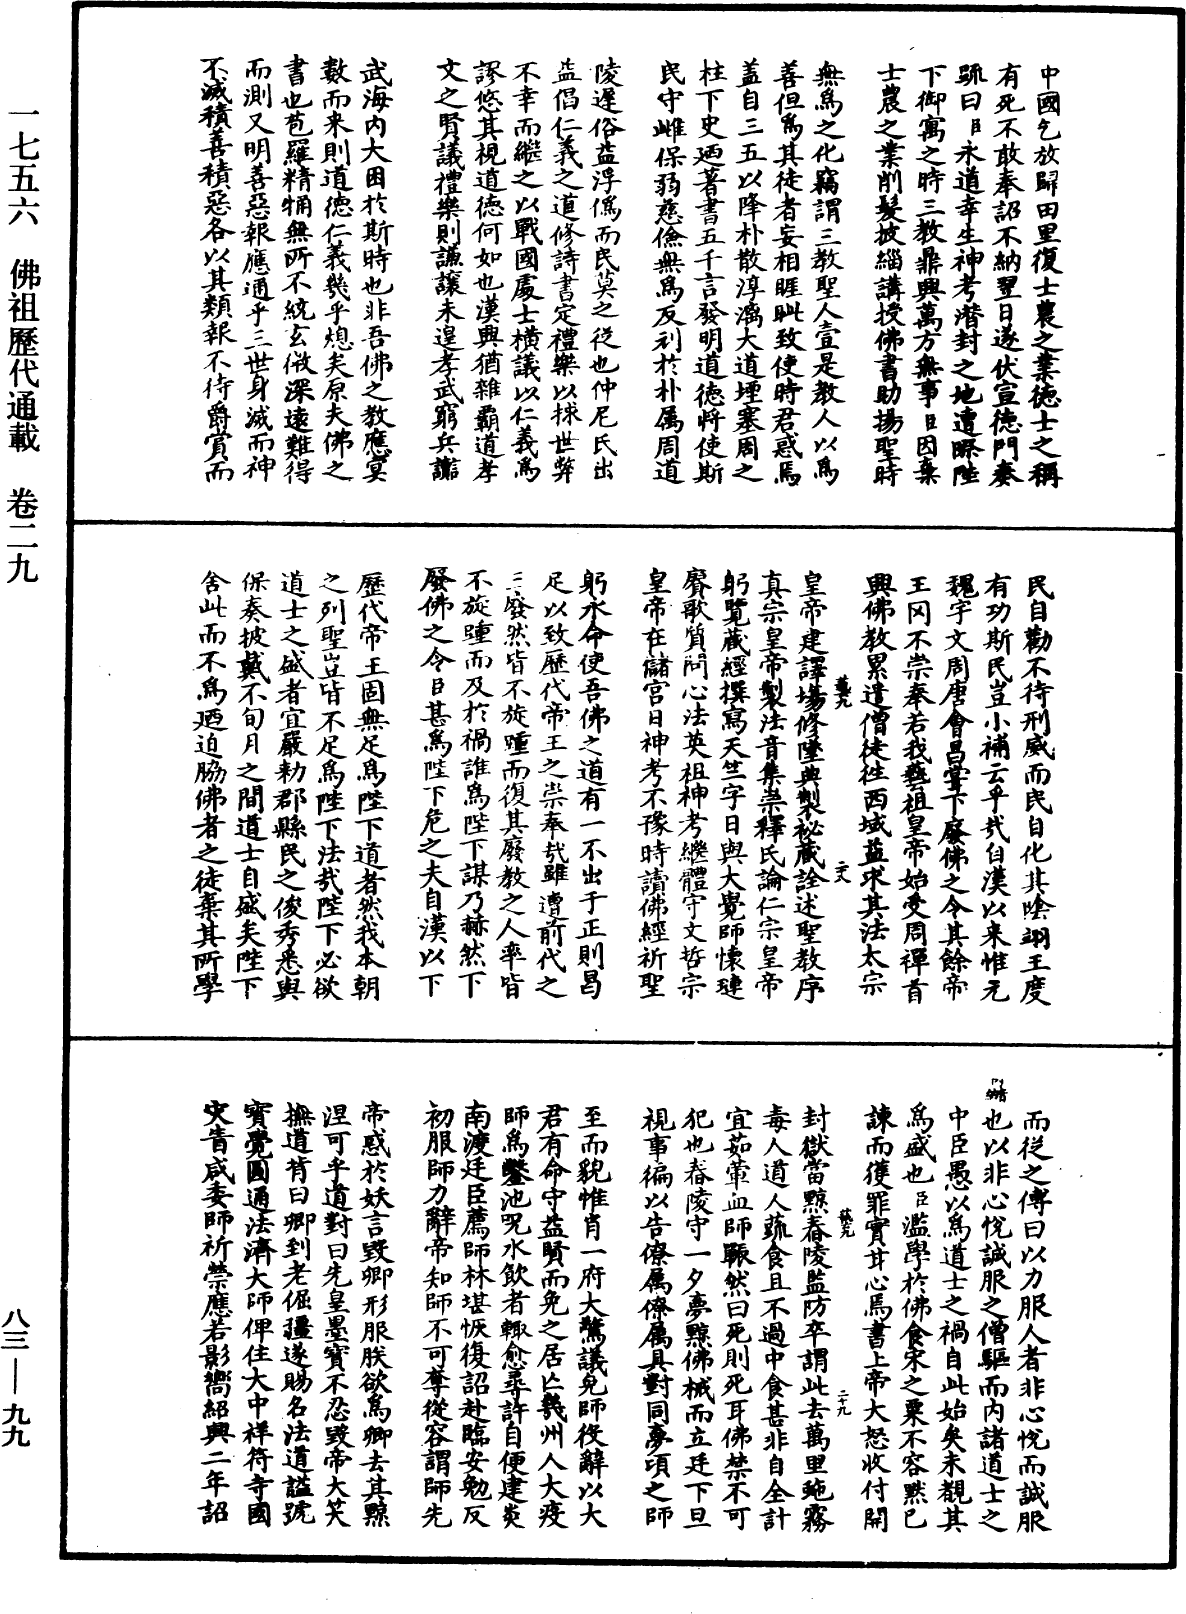 一七五六　佛祖歷代通載　卷二九
中國乞放歸田里復士農之業德士之稱
有死不敢奉詔不納翌日遂伏宣德門奏
疏曰臣永道幸生神考潛封之地遭際陛
下御寓之時三教鼎興萬方無事臣因棄
士農之業削髮披緇講授佛書助揚聖時
無為之化竊謂三教聖人壹是教人以為
善但為其徒者妄相睚眦致使時君惑焉
蓋自三五以降朴散淳漓大道堙塞周之
柱下史廼著書五千言發明道德將使斯
民守雌保弱慈儉無為反利於朴属周道
陵遲俗益浮偽而民莫之從也仲尼氏出
益倡仁義之道修詩書定禮樂以捄世弊
不幸而繼之以戰國處士横議以仁義為
謬悠其視道德何如也漢興猶雜霸道孝
文之賢議禮樂則謙讓未遑孝武窮兵黷
武海内大困於斯時也非吾佛之教應寞
數而来則道德仁義幾乎熄矣原夫佛之
書也苞羅精犕無所不統玄微深遠難得
而測又明善惡報應通乎三世身滅而神
不滅積善積惡各以其類報不待爵賞而
民自勸不待刑威而民自化其陰翊王度
有功斯民豈小補云乎哉自漢以来惟元
魏宇文周唐會昌甞下廢佛之令其餘帝
王罔不崇奉若我藝祖皇帝始受周禪首
興佛教累遣僧徒徃西域益求其法太宗
皇帝建譯場修墜典製祕藏詮述聖教序
真宗皇帝製法音集崇釋氏論仁宗皇帝
躬覽藏經撰寫天竺字日與大覺師懷璉
賡歌質問心法英祖神考繼體守文哲宗
皇帝在儲宮日神考不豫時讀佛經祈聖
躬永命使吾佛之道有一不出于正則曷
足以致歷代帝王之崇奉哉雖遭前代之
三廢然皆不旋踵而復其廢教之人率皆
不旋踵而及於禍誰為陛下謀乃赫然下
廢佛之令臣甚為陛下危之夫自漢以下
歷代帝王固無足為陛下道者然我本朝
之列聖豈皆不足為陛下法哉陛下必欲
道士之盛者宜嚴勑郡縣民之俊秀悉與
保奏披戴不旬月之間道士自盛矣陛下
舍此而不為廼迫脇佛者之徒棄其所學
而從之傳曰以力服人者非心悅而誠服
也以非心悅誠服之僧驅而内諸道士之
中臣愚以為道士之禍自此始矣未覩其
為盛也臣濫學於佛食宋之粟不容黙已
諫而獲罪實甘心焉書上帝大怒收付開
封獄當黥舂陵監防卒謂此去萬里蚖霧
毒人道人蔬食且不過中食甚非自全計
宜茹葷血師冁然曰死則死耳佛禁不可
犯也舂陵守一夕夢黥佛械而立廷下旦
視事徧以告僚属僚属具對同夢頃之師
至而貌惟肖一府大驚議免師役辭以大
君有命守益賢而免之居亡幾州人大疫
師為鑿池呪水飲者輙愈尋許自便建炎
南渡廷臣薦師林堪恢復詔赴臨安勉反
初服師力辭帝知師不可奪從容謂師先
帝惑於妖言毀卿形服朕欲為卿去其黥
涅可乎道對曰先皇墨寳不忍毀帝大笑
撫道背曰卿到老倔彊遂賜名法道謚號
寳覺圓通法濟大師俾住大中祥符寺國
灾眚咸委師祈禜應若影嚮紹興二年詔
藝九
二八
藝九
二十九
八三—九九